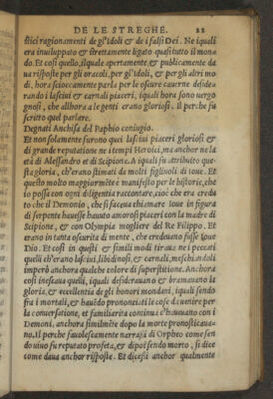 DE LE STREGHE. 22
stici ragionamenti de gl'idoli & de i falsi Dei. Ne iquali
era inuiluppato & strettamente ligato quasi tutto il mon
do. Et cosi quello, ilquale apertamente, & publicamente da
ua risposte per gli oracoli, per gl'idoli, & per gli altri mo
di, hora sciocamente parla per le oscure cauerne deside
rando i lasciui & carnali piaceri, iquali hora sono uergo
gnosi, che allhora a le genti erano gloriosi. Il perche fu
scritto quel parlare.
Degnati Anchisa del Paphio coniugio.
Et non solamente furono quei lasciui piaceri gloriosi &
di grande reputatione ne i tempi Heroici, ma anchor ne la
età di Alessandro et di Scipione. A iquali fu attribuito que
sta gloria, ch'erano stimati da molti figliuoli di Ioue. Et
questo molto maggiormēte è manifesto per le historie, che
io possa con ogni diligentia raccontare, cioè che era credu
to che il Demonio, che si faceua chiamare Ioue in figura
di serpente hauesse hauuto amorosi piaceri con la madre di
Scipione, & con Olympia mogliere del Re Filippo. Et
erano in tanta oscurita di mente, che credeuano fusse Ioue
Dio. Et cosi in questi & simili modi tiraua ne i peccati
quelli ch'erano lasciui, libidinosi, & carnali, meschiandoli
imperò anchora qualche colore di superstitione. Anchora
cosi inescaua quelli, iquali desiderauano & bramauano la
gloria, & eccellentia de gli honori mondani, iquali sendo
fra i mortali, & hauēdo prononciati le cose da uenire per
la cōuersatione, et familiarità continua c'haueuano con i
Demoni, anchora similmēte dopo la morte pronosticaua-
no. Il perche fauolesamente narrasi di Orpheo come sen
do uiuo fu reputato profeta, & dipoi sendo morto, si dice
come daua anchor risposte. Et dicesi anchor qualmente